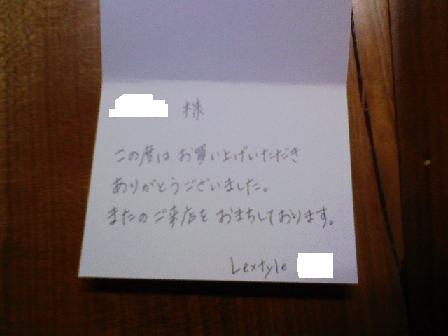 様
この度は お買い上げいただき
ありがとうございました。
またのご来店を おまちしております。
Lextyle